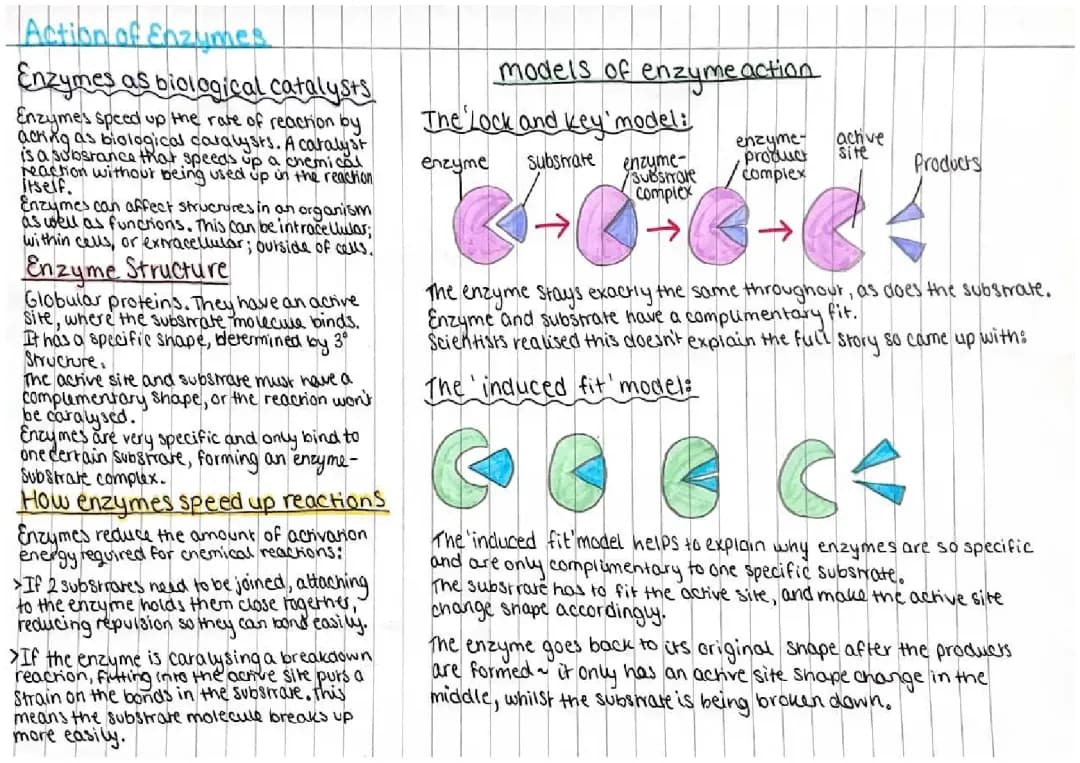 Action of Enzymes
Enzymes as biological catalysts
Enzymes speed up the rate of reaction by
acting as biological catalysts. A catalyst
is a substance that speeds up a chemical
reaction without being used up in the reaction
itself.
Enzymes can affect structures in an organism
as well as functions. This can be intracellular;
within cells, or extracellular; outside of cells.
Enzyme Structure
Globular proteins. They have an active
site, where the substrate molecule binds.
It has a specific shape, determined by 3°
Structure.
The active site and substrate must have a
complimentary shape, or the reaction won't
be catalysed.
Enzymes are very specific and only bind to
one certain substrate, forming an enzyme-
substrate complex.
How enzymes speed up reactions
Enzymes reduce the amount of activation
energy required for chemical reactions:
>If 2 substrates need to be joined, attaching
to the enzyme holds them close together,
reducing repulsion so they can bond easily.
>If the enzyme is catalysing a breakdown
reaction, fitting into the active site puts a
strain on the bonds in the substrate. This
means the substrate molecule breaks up
more easily.
models of enzyme action
The 'Lock and Key' model:
enzyme
substrate
enzyme-
substrate
complex
enzyme-
product
complex
active
site
Products
The enzyme stays exactly the same throughout, as does the substrate.
Enzyme and substrate have a complimentary fit.
Scientists realised this doesn't explain the full story so came up with:
The 'induced fit' model:
The 'induced fit' model helps to explain why enzymes are so specific
and are only complimentary to one specific substrate.
The substrate has to fit the active site, and make the active site
change shape accordingly.
The enzyme goes back to its original shape after the products
are formed ~ it only has an active site shape change in the
middle, whilst the substrate is being broken down.